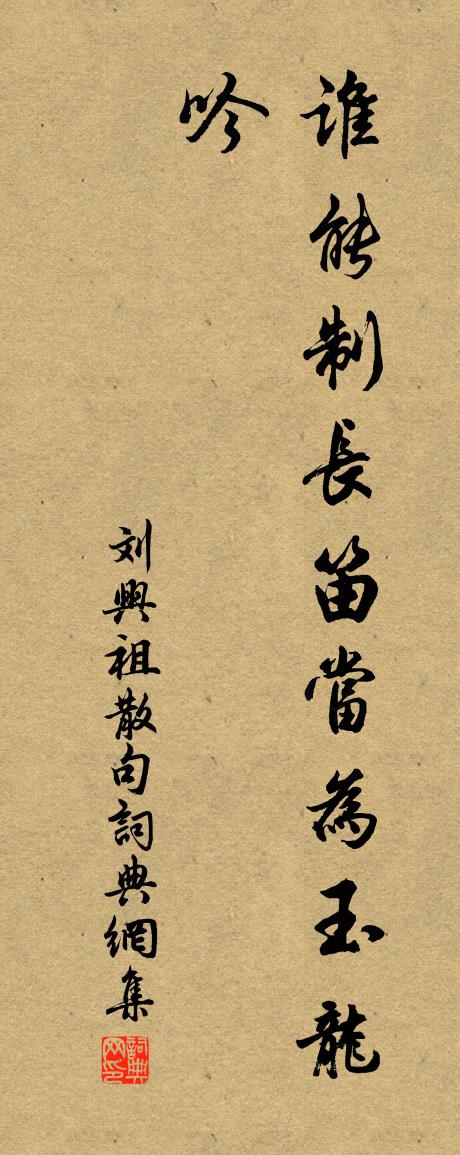 誰能制長笛當為玉龍
吟
刘興祖散句詞典網集
詞典网印